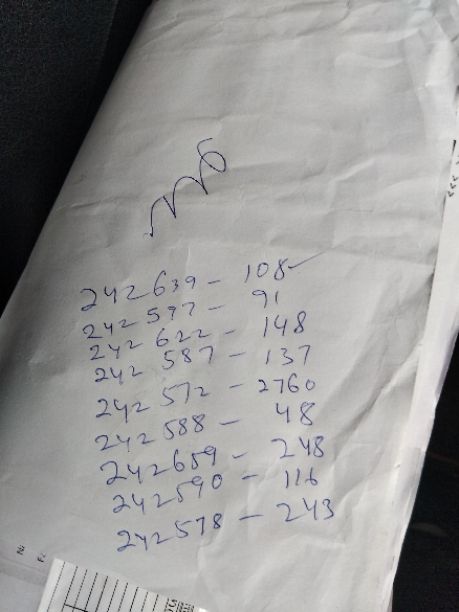 242639 - 108
242597 - 91
242622 - 148
242587 - 137
242572 - 2760
242588 - 48
242659 - 248
242590 - 116
242578 - 243